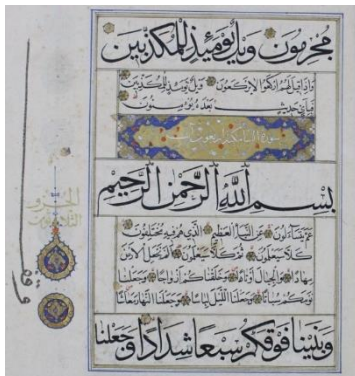 مُجْرِمُونَ وَيْلٌ يَوْمَئِذٍ لِلْمُكَذِّبِينَ
وَإِذَا قِيلَ لَهُمُ ارْكَعُوا لَا يَرْكَعُونَ وَيْلٌ يَوْمَئِذٍ لِلْمُكَذِّبِينَ
فَبِأَيِّ حَدِيثٍ بَعْدَهُ يُؤْمِنُونَ
سورة النبأ مكية اربعون
بِسْمِ اللَّهِ الرَّحْمَنِ الرَّحِيمِ
عَمَّ يَتَسَاءَلُونَ عَنِ النَّبَإِ الْعَظِيمِ الَّذِي هُمْ فِيهِ مُخْتَلِفُونَ
كَلَّا سَيَعْلَمُونَ ثُمَّ كَلَّا سَيَعْلَمُونَ أَلَمْ نَجْعَلِ الْأَرْضَ
مِهَادًا وَالْجِبَالَ أَوْتَادًا وَخَلَقْنَاكُمْ أَزْوَاجًا وَجَعَلْنَا
نَوْمَكُمْ سُبَاتًا وَجَعَلْنَا اللَّيْلَ لِبَاسًا وَجَعَلْنَا النَّهَارَ مَعَاشًا
وَبَنَيْنَا فَوْقَكُمْ سَبْعًا شِدَادًا وَجَعَلْنَا
الجزو
الثلاثون
وقف